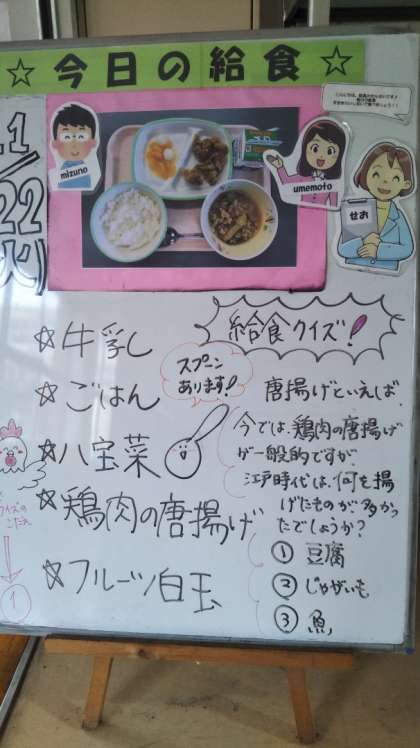 ☆今日の給食☆
11/22(火)
mizuno
umemoto
せお
☆牛乳
☆ごはん
☆八宝菜
☆鶏肉の唐揚げ
☆フルーツ白玉
スプーン
あります!
給食クイズ!
唐揚げといえば、
今では、鶏肉の唐揚げ
が一般的ですが
江戸時代は、何を揚
げたものが、多かっ
たでしょうか?
① 豆腐
② じゃがいも
③ 魚
クイズの
こたえ
↓
①